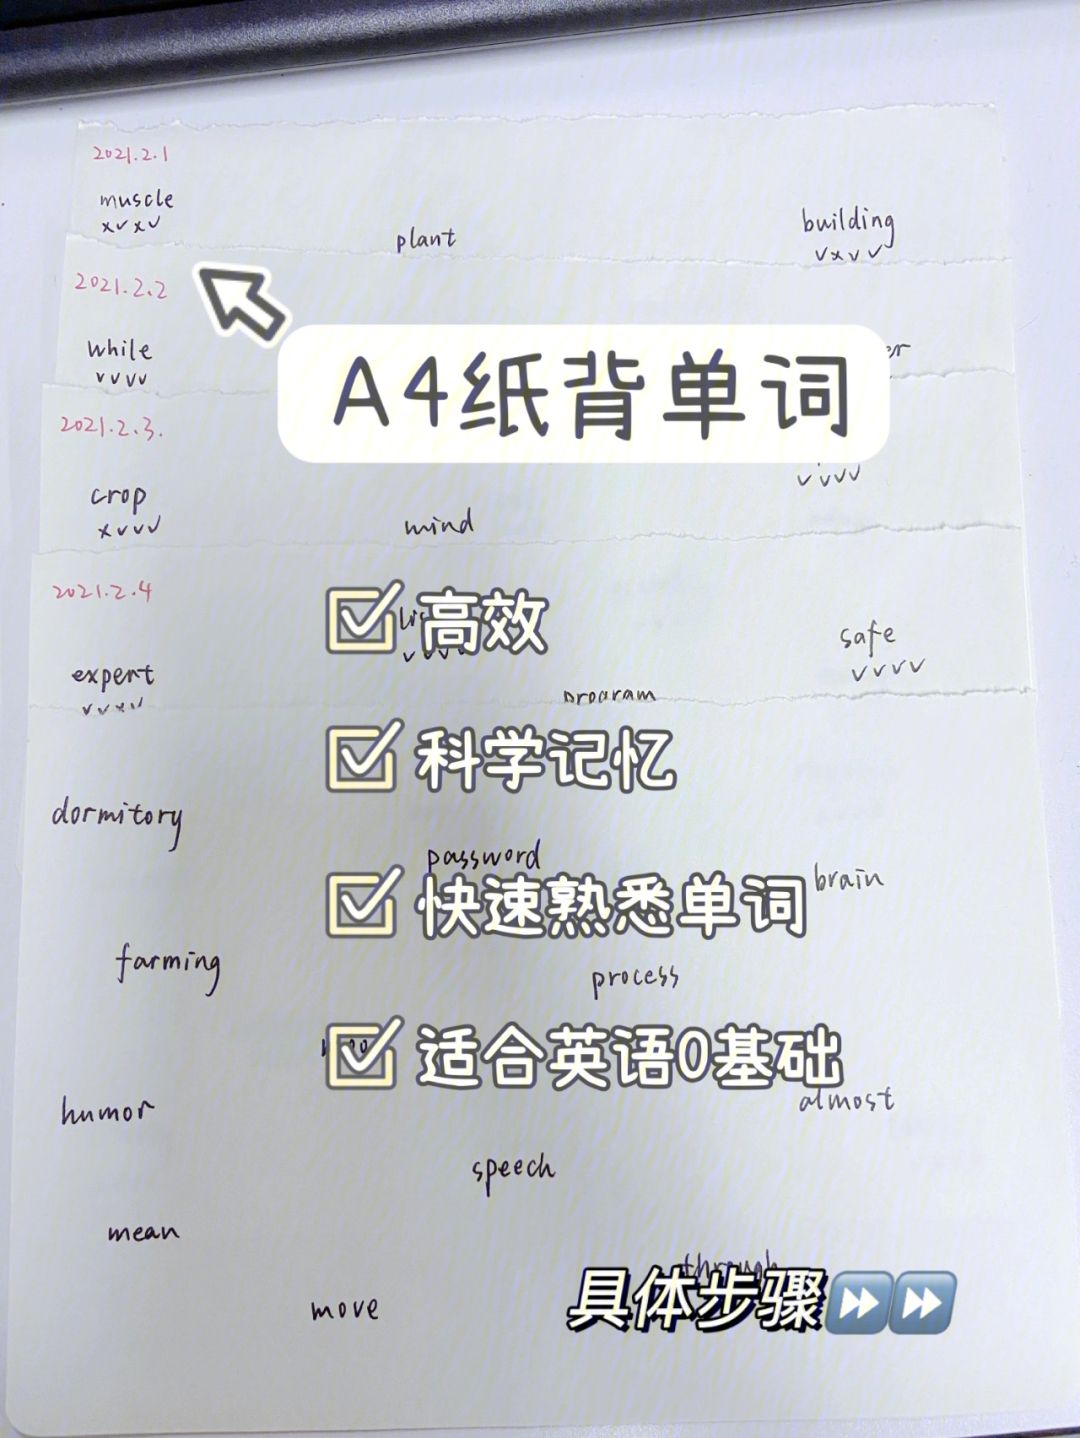 2021.2.1
muscle
xvxv
plant
building
vxvv
2021.2.2
while
vvvv
A4纸背单词
2021.2.3.
vvvv
crop
xvvv
mind
2021.2.4
高效
safe
vvvv
expert
vvxv
program
科学记忆
dormitory
password
brain
快速熟悉单词
farming
process
适合英语0基础
humor
almost
speech
mean
through
具体步骤
move